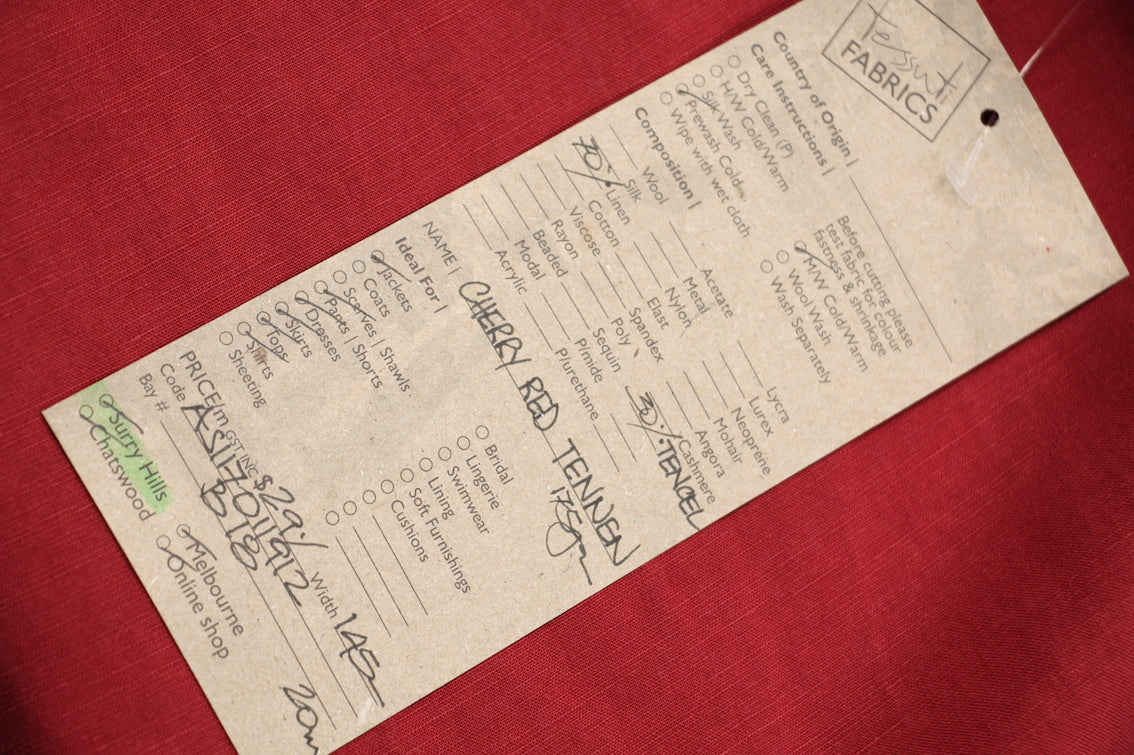 tessuti
FABRICS
Country of Origin |
Care Instructions |
Before cutting please
test fabric for colour
fastness & shrinkage
Dry Clean (P)
H/W Cold/Warm
Silk Wash
Prewash Cold
Wipe with wet cloth
M/W Cold/Warm
Wool Wash
Wash Separately
Composition |
Wool
Silk
70% Linen
Cotton
Viscose
Rayon
Beaded
Modal
Acrylic
Acetate
Metal
Nylon
Elast
Spandex
Poly
Sequin
P/mide
P/urethane
Lycra
Lurex
Neoprene
Mohair
Angora
Cashmere
30% TENCEL
NAME | CHERRY RED TENNEN
175gm
Ideal For |
Jackets
Coats
Scarves | Shawls
Pants | Shorts
Dresses
Skirts
Tops
Shirts
Sheeting
Bridal
Lingerie
Swimwear
Lining
Soft Furnishings
Cushions
PRICE/m GST INC $29.- Width 145
Code
Bay # B 118
20m
Surry Hills
Chatswood
Melbourne
Online shop